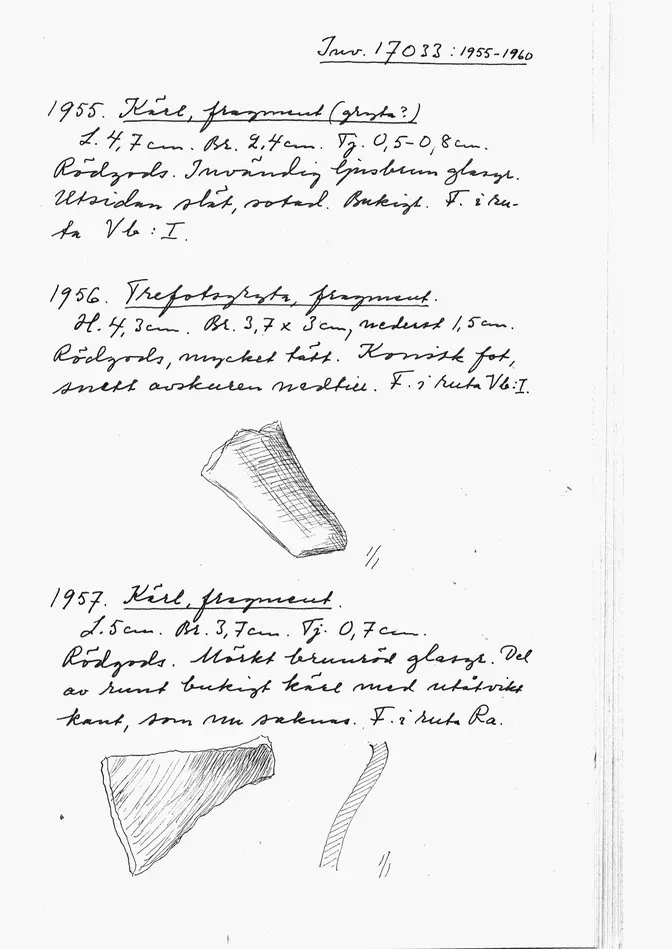 Inv. 17033 : 1955-1960
1955. Kärl, fragment (gryta?)
L. 4,7 cm. Br. 2,4 cm. Tj. 0,5-0,8 cm.
Rödgods. Invändig ljusbrun glasyr.
Utsidan slät, sotad. Bukigt. F. i ru-
ta Vb : I.
1956. Trefotsgryta, fragment.
H. 4,3 cm. Br. 3,7 x 3 cm, nederst 1,5 cm.
Rödgods, mycket tätt. Konisk fot,
snett avskuren nedtill. F. i ruta Vb:I.
1/1
1957. Kärl, fragment.
L. 5 cm. Br. 3,7 cm. Tj. 0,7 cm.
Rödgods. Mörkt brunröd glasyr. Del
av runt bukigt kärl med utåtvikt
kant, som nu saknas. F. i ruta Ra.
1/1